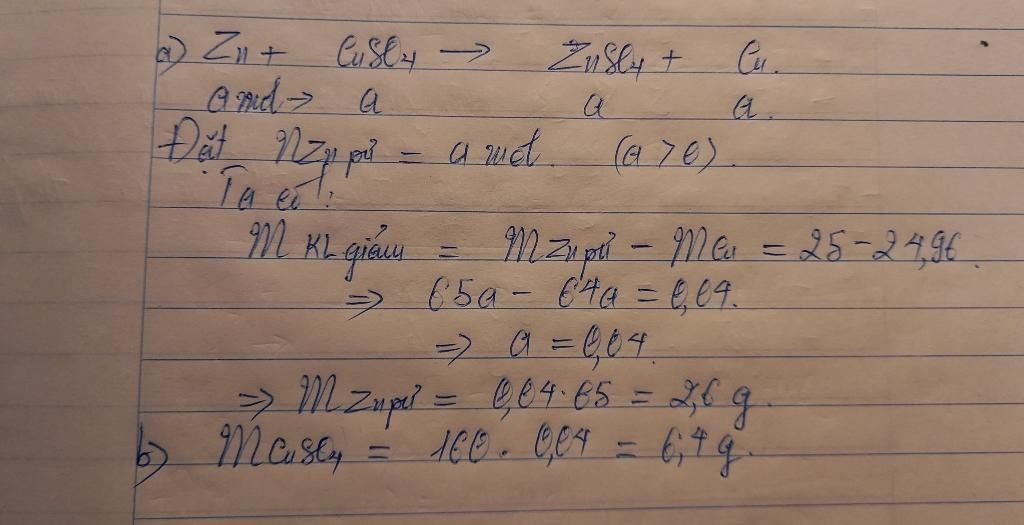 a) Zn + CuSO4 → ZnSO4 + Cu.
a mol → a a a.
Đặt nZn pứ = a mol. (a > 0).
Ta có:
mKL giảm = mZn pứ - mCu = 25 - 24,96.
⇒ 65a - 64a = 0,04.
⇒ a = 0,04.
⇒ mZn pứ = 0,04.65 = 2,6 g.
b) mCuSO4 = 160. 0,04 = 6,4 g.